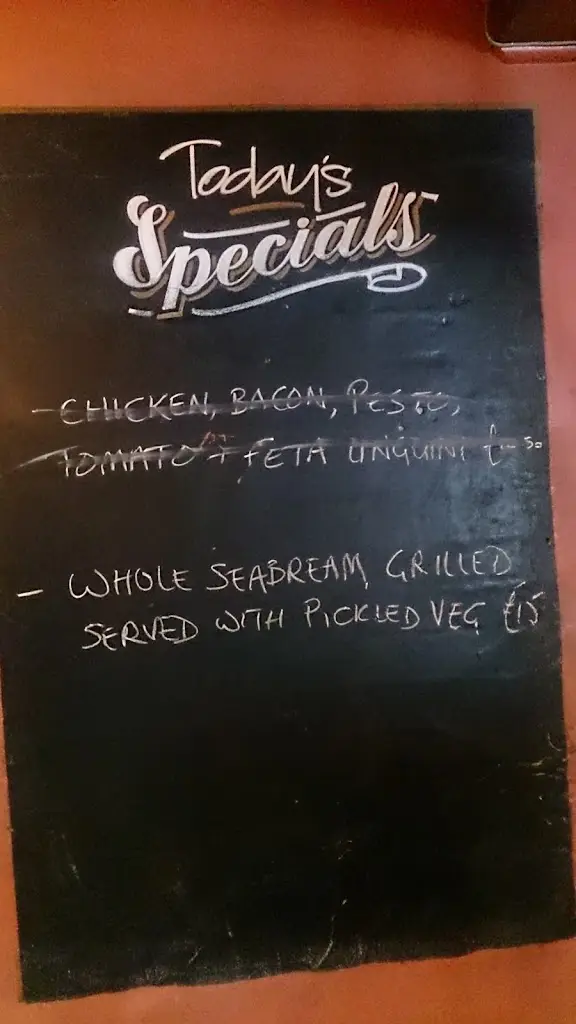 Today's
Specials
- CHICKEN, BACON, PESTO,
TOMATO + FETA LINGUINI
- WHOLE SEABREAM, GRILLED
SERVED WITH PICKLED VEG £15